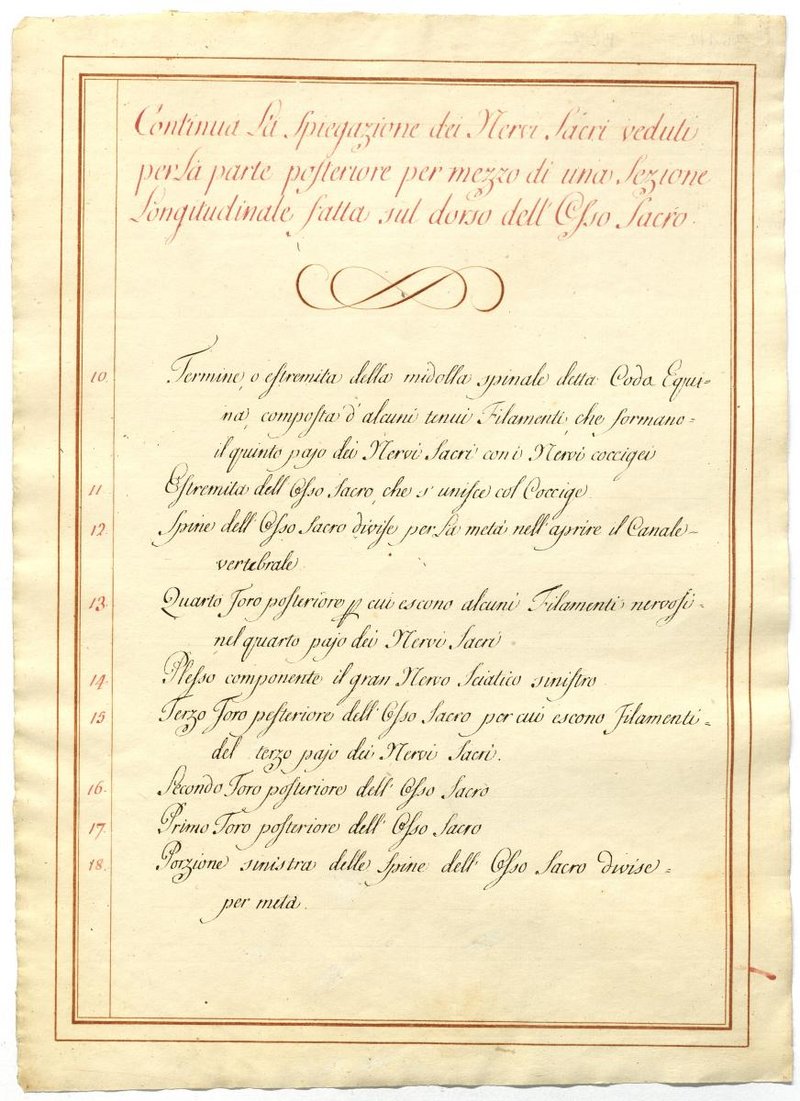 Continua La Spiegazione dei Nervi Sacri veduti
per la parte posteriore per mezzo di una Sezione
Longitudinale fatta sul dorso dell' Osso Sacro.
10. Termine, o estremita della midolla spinale detta Coda Equi=
na, composta d' alcuni tenui Filamenti, che formano=
il quinto pajo dei Nervi Sacri con i Nervi coccigei
11 Estremita dell' Osso Sacro, che s' unisce col Coccige.
12. Spine dell' Osso Sacro divise per la metà nell' aprire il Canale=
vertebrale
13. Quarto Foro posteriore p cui escono alcuni Filamenti nervosi=
nel quarto pajo dei Nervi Sacri
14. Plesso componente il gran Nervo Sciatico sinistro
15 Terzo Foro posteriore dell' Osso Sacro per cui escono Filamenti=
del terzo pajo dei Nervi Sacri.
16. Secondo Foro posteriore dell' Osso Sacro
17. Primo Foro posteriore dell' Osso Sacro
18. Porzione sinistra delle Spine dell' Osso Sacro divise=
per metà.